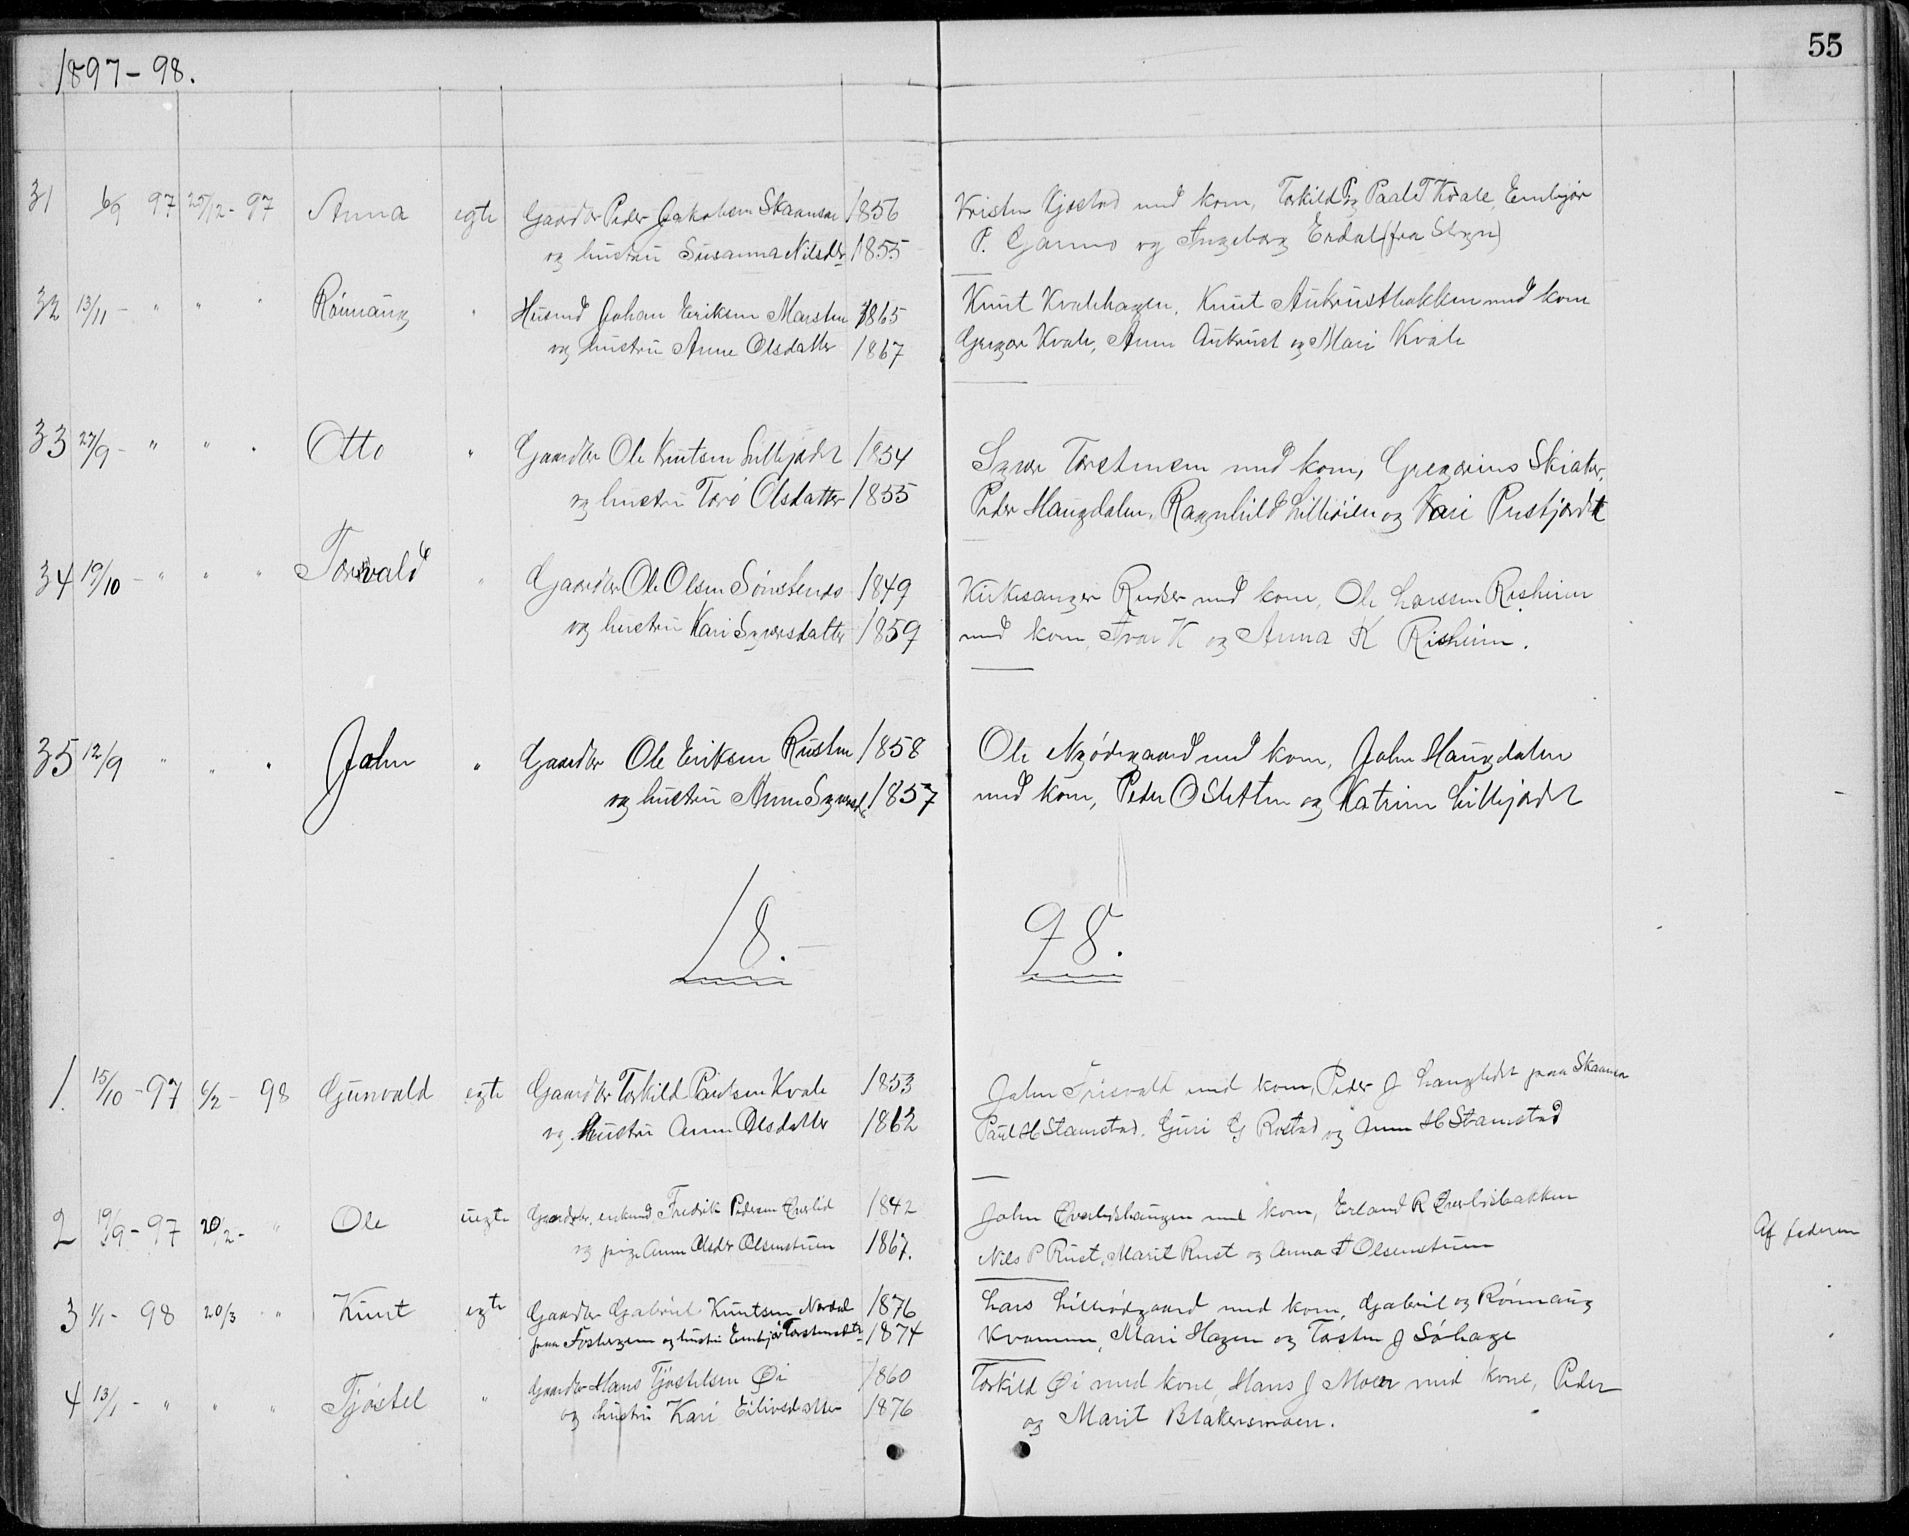 1897-98.
55
31 6/9 97 25/12 - 97 Anna egte Gaardbr Peder Jakobsen Skaansar 1856 Kristen Kjæstad med kone, Torkild P. og Paal T Kvale, Embjør
og hustru Susanna Nilsdtr 1855 P. Garmo og Ingeborg Erdal (fra Stryn)
32 13/11 - " " " Rønnaug " Husmd Johan Eriksen Marsten 1865 Knut Kvalehagen, Knut Aukrustbakken med kone
og hustru Anne Olsdatter 1867 Gregor Kvale, Anne Aukrust og Mari Kvale
33 27/9 - " " " Otto " Gaardbr Ole Knutsen Lillejordet 1854 Syver Torstensen med kone, Gregorius Skiaker,
og hustru Toro Olsdatter 1855 Peder Haugdalen, Ragnhild Lilleøien og Kari Prestjordet
34 19/10 - " " " Torvald " Gaardbr Ole Olsen Sønstenes 1849 Kirkesanger Rudser med kone, Ole Larssen Risheim
og hustru Kari Syversdatter 1859 med kone, Ivar K og Anna K Risheim.
35 12/9 " " " John " Gaardbr Ole Eriksen Rusten 1858 Ole Nyødegaard med kone, John Haugdalen
og hustru Anne Syversd. 1857 med kone, Peder O Sletten og Katrine Lillejordet
18.- 98.
1. 15/10 - 97 6/2 - 98 Gunvald egte Gaardbr Torkild Paulsen Kvale 1853 John Frisvold med kone, Peder J Langlidt paa Skaansar
og hustru Anne Olsdatter 1862 Paul H Stamstad, Guri G Rostad og Anne H Stamstad
2 19/9 - 97 20/2 - " Ole uegte Gaardbr, enkemd, Fredrik Pedersen Qverlid 1842 John Qverlidshaugen med kone, Erland R Qverlidsbakken
og pige Anne Olsdtr Olsenstuen 1867. Nils P Rust, Marit Rust og Anna T Olsenstuen Af faderen
3 1/1 - 98 20/3 " Knut egte Gaardbr Gabriel Knutsen Nordal 1876 Lars Lilleødegaard med kone, Gabriel og Rønnaug
paa Fostergen og hustru Embjør Torstensdtr 1874 Kvamme, Mari Hagen og Torsten J Sørhage
4 13/1 - " " " Tjøstel " Gaardbr Hans Tjøstelsen Øi 1860 Torkild Øi med kone, Hans J Moen med kone, Peder
og hustru Kari Eilivsdatter 1876 og Marit Blakersmoen.